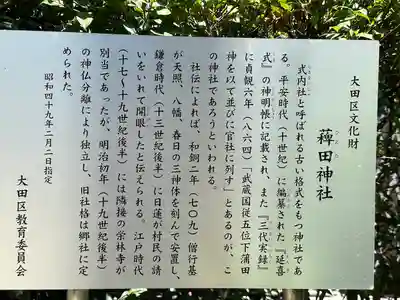 大田区文化財
薭田神社
ひえた
式内社と呼ばれる古い格式をもつ神社であ
る。平安時代(十世紀)に編纂された『延喜
式』の神明帳に記載され、また『三代実録』
に貞観六年(八六四)「武蔵国従五位下蒲田
神を以て並びに官社に列す」とあるのが、こ
の神社であろうといわれる。
社伝によれば、和銅二年(七〇九)僧行基
が天照、八幡、春日の三神体を刻んで安置し、
鎌倉時代(十三世紀後半)に日蓮が村民の請
いをいれて開眼したと伝えられる。江戸時代
(十七〜十九世紀後半)には隣接の栄林寺が
別当であったが、明治初年(十九世紀後半)
の神仏分離により独立し、旧社格は郷社に定
められた。
昭和四十九年二月二日指定
大田区教育委員会